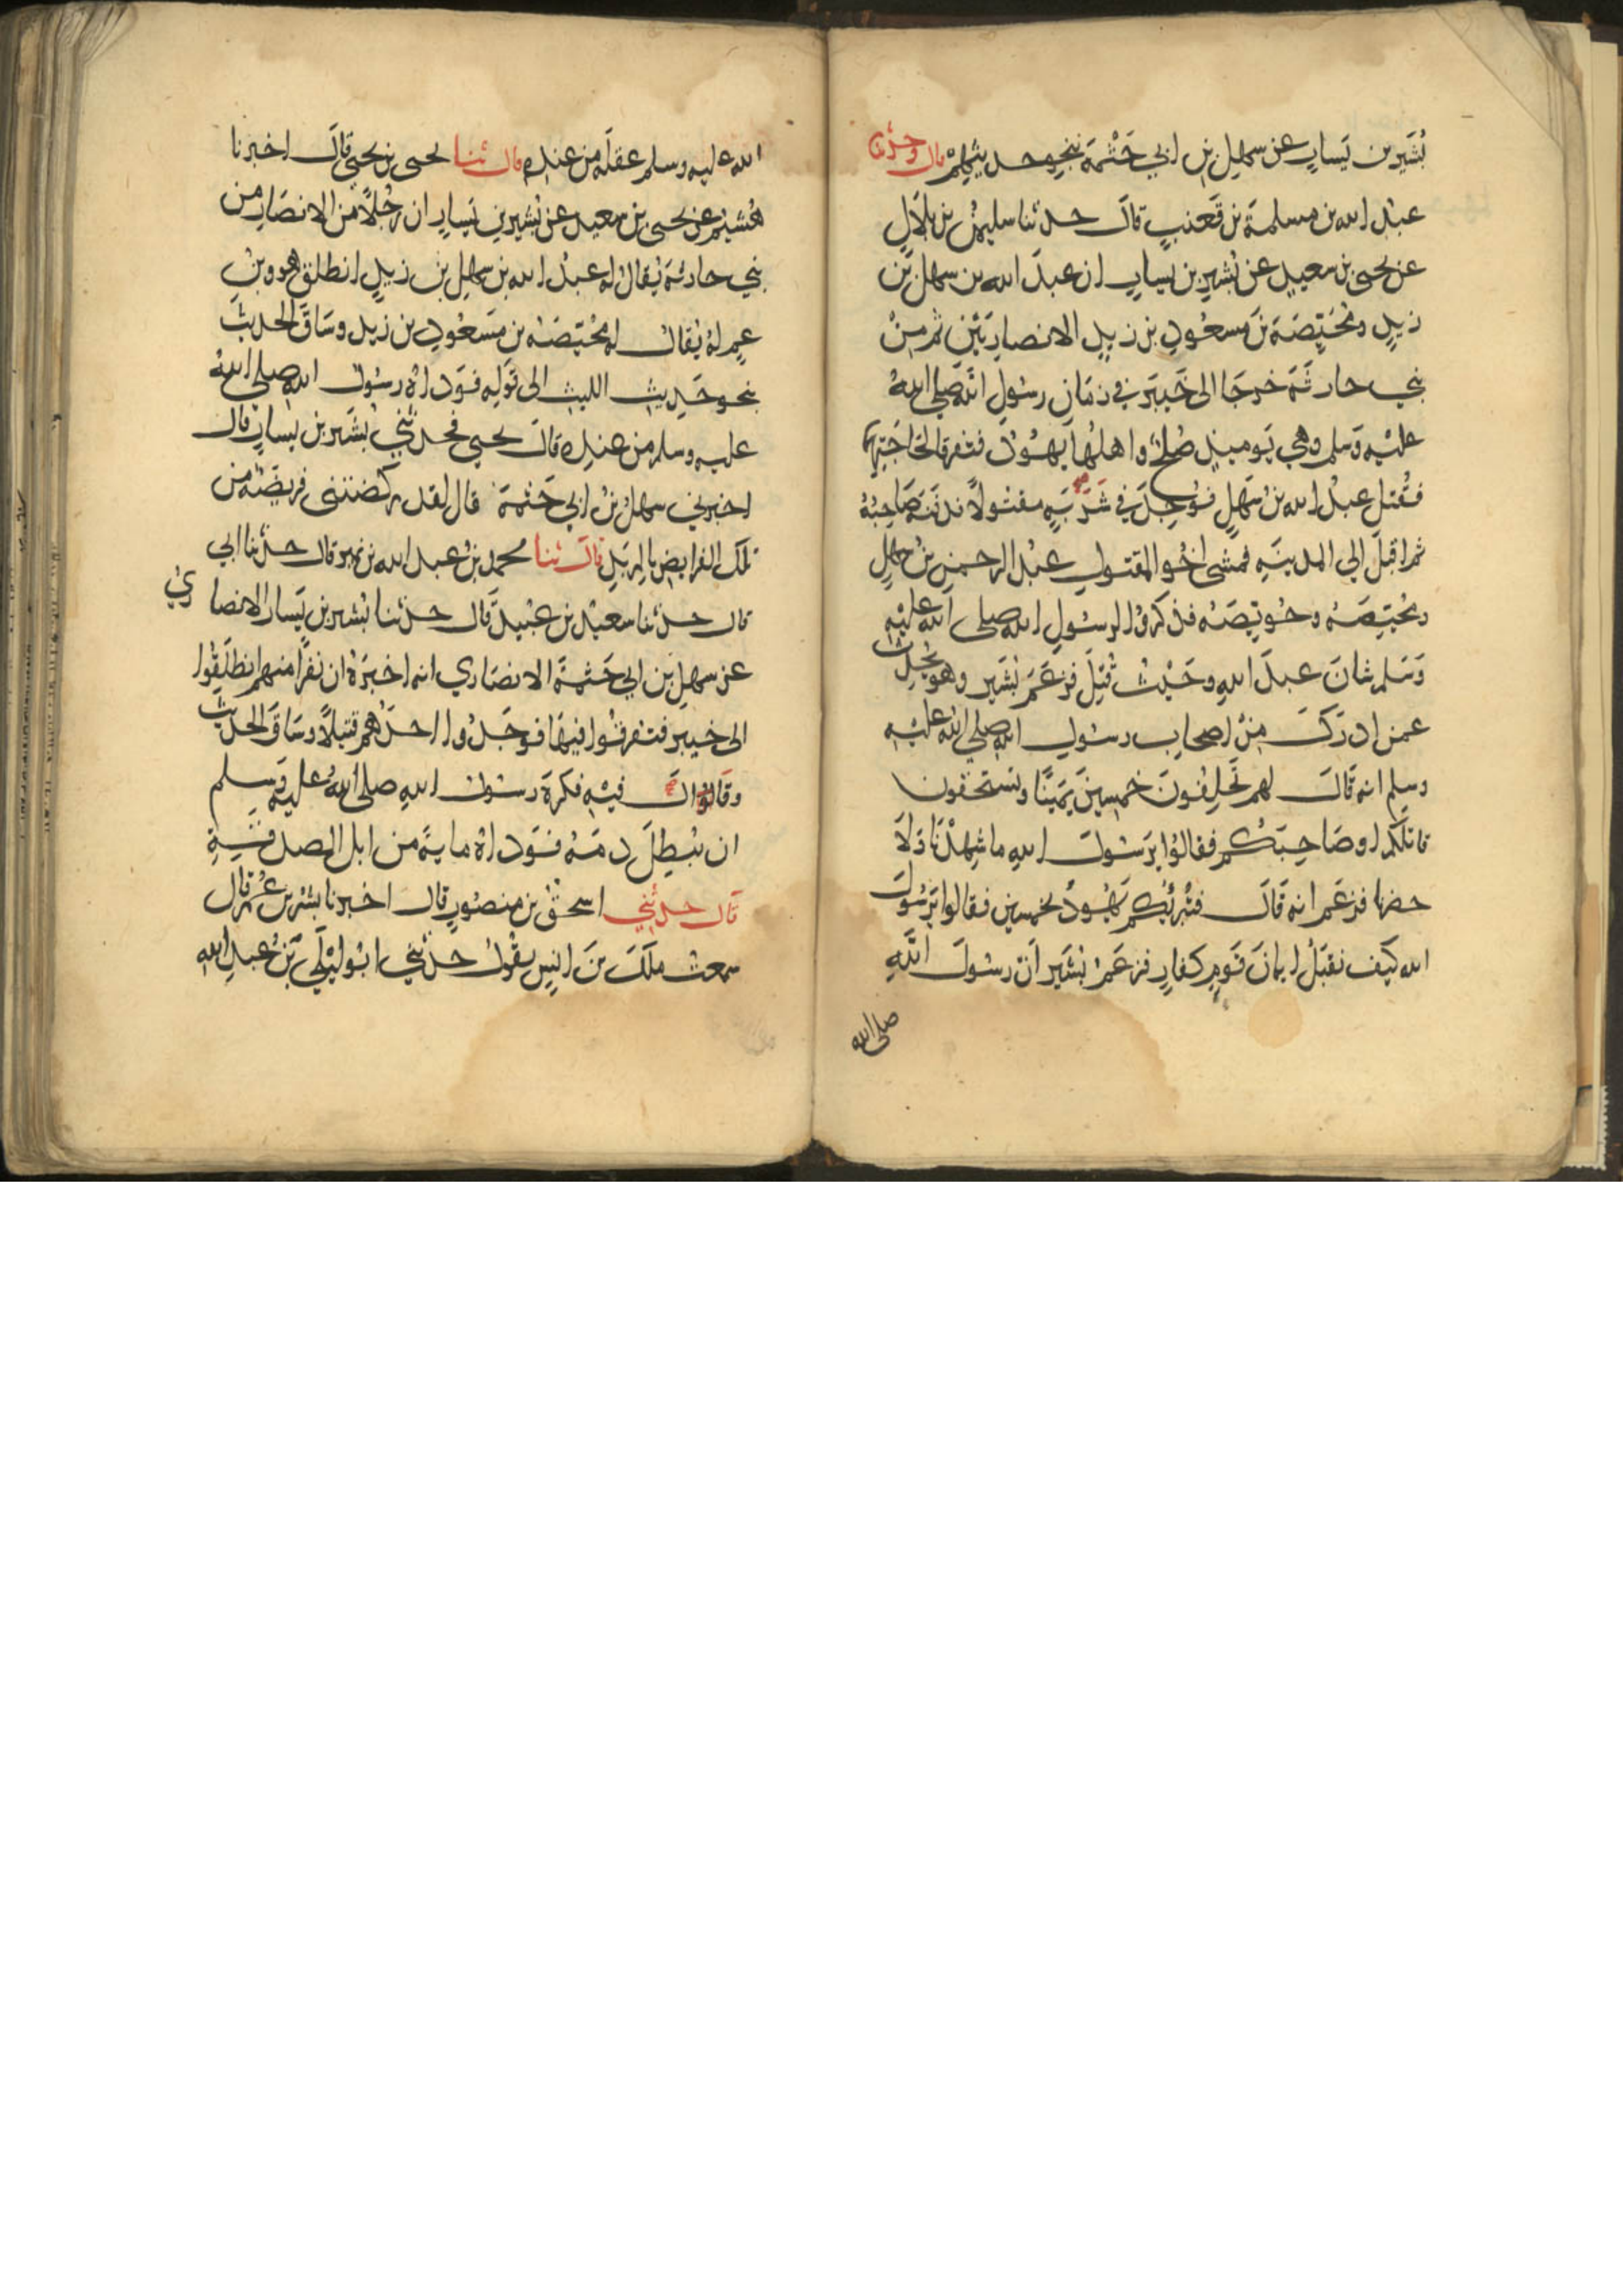 بُشَير بن يَسار عن سهل بن ابي حَثْمَة بنحو حديثهِمْ قال وحدثنا
عبدُ الله بن مسلمة بن قَعنبٍ قالَ حدثنا سليمنُ بن بلالٍ
عن يحيى بن سعيد عن بُشير بن يسار ان عبدَ الله بن سهل بن
زيدٍ ومُحَيِّصَةَ بنَ مسعُودِ بن زيدٍ الانصاريَيْنِ ثم مِنْ
بني حارثَةَ خرجَا الى خَيبَرَ في زمَانِ رسُولِ الله صلى اللهُ
عليْهِ وَسلم وهي يَوميذٍ صُلحٌ واهلُهَا يهُوْدُ فتفرقا لحَاجَتِهِمَا
فقُتِلَ عبدُ الله بنُ سَهلٍ فوُجِدَ في شَرَبَةٍ مقتُولًا فدفَنَهُ صَاحِبُهُ
ثم اقبَلَ الي المدينَةِ فمشى اخُو المقتولِ عبدُ الرحمنِ بنُ سهلٍ
ومُحَيِّصَةُ وحُوَيِّصَةُ فذكرُوا لرسُولِ الله صلى الله عليْهِ
وَسَلم شانَ عبدَ اللهِ وحَيْثُ قُتِلَ فزعَمَ بُشَير وهو يُحدِّث
عمن ادرَكَ مِنْ اصحابِ رسُولِ الله صلي اللهُ عليْهِ
وسلم انه قَالَ لهم تَحْلِفُونَ خمسِينَ يَمينًا وتستحقون
قاتلَكم او صَاحِبَكُم فقالوُا يَرسُولَ اللهِ ما شَهِدْنَا وَلَا
حضرنا فزعَم انه قَالَ فتُبْرئُكم يَهُودُ بخمسِين فقالوا يَرسُولَ
الله كيَف نقبَلُ ايمانَ قَومٍ كفارٍ فزعَمَ بُشَير انّ رسُولَ اللهِ
صلى الله
الله عليه وسلم عقلَهُ من عندِهِ قال ثنا يحيى بن يحيى قالَ اخبَرنا
هُشيْم عن يحيى بن سعيد عن بُشير بن يَسارٍ ان رجُلًا من الانصَار من
بني حارثةَ يُقالُ له عبدُ الله بن سهل بن زيدٍ انطلق هو وبنُ
عمٍ لهُ يُقالُ له مُحَيِّصَةُ بن مَسعُودِ بن زيد وسَاقَ الحديثَ
بنحو حَديثِ الليثِ الى قَولِه فَوَدَاهُ رسُولُ الله صلى اللهُ
عليه وسلم من عندِه قالَ يحيى فحدثني بُشَير بن يسارٍ قال
اخبرني سهلُ بنُ ابي حَثمَة قال لقد ركضتنى فريضَةٌ من
تلكَ الفرايضِ بالمِربَدِ قالَ ثنا محمدُ بنُ عبد الله بن نمير قال حدثنا ابي
قال حدثنا سعيدُ بن عبَيد قَال حدثنا بُشير بن يَسار الانصاري
عن سهلِ بن ابي حَثمةَ الانصَاري انه اخبَرَهُ ان نفرًا منهم انطلَقُوا
الى خيبر فتفرقُوا فيهَا فوجَدُوا احدَهُم قتيلًا وسَاقَ الحديث
وقَالوُا الَ فيْهِ فكرهَ رسُولُ اللهِ صلى اللهُ عليه وَسلم
ان يُبطِلَ دمَهُ فوَدَاهُ مايةً من ابل الصدقَةِ
قال حدثني اسحقُ بن منصُورٍ قال اخبرنا بشْر بن عُمَر قال
سمعتُ ملكَ بنَ انسٍ يقُولُ حدثني ابُو ليْلَى بنُ عبدِ اللهِ